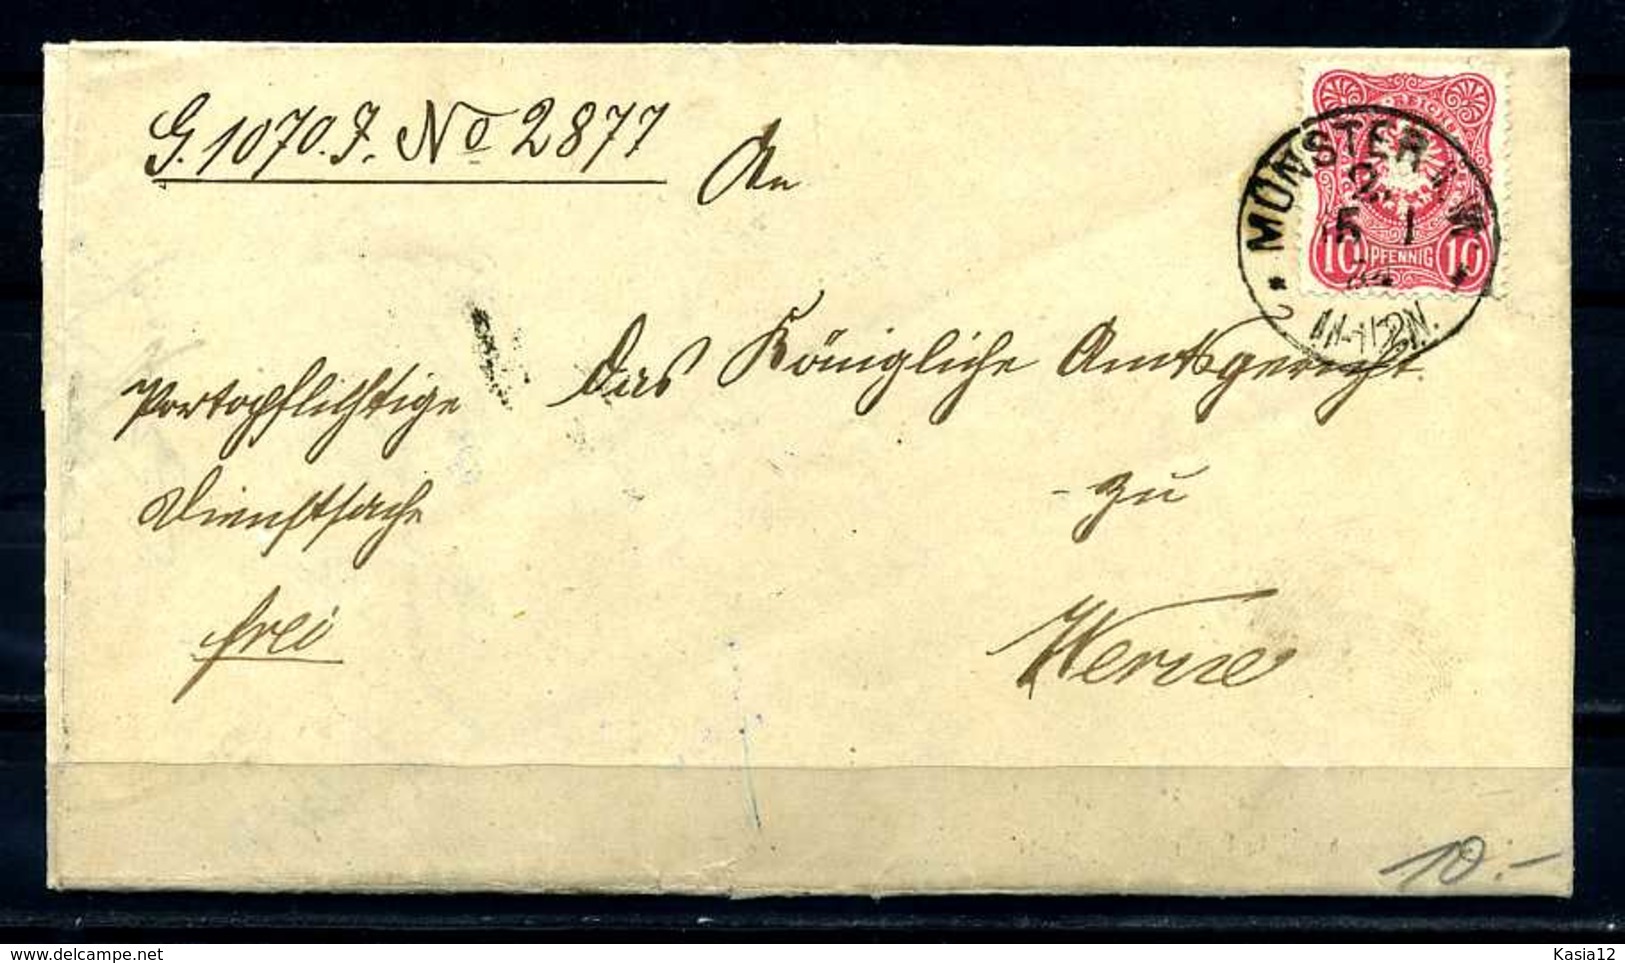 G. 1070. J. No 2877
An
das Königliche Amtsgericht
zu
Werne
Portopflichtige
Dienstsache
frei
REICHS
10 PFENNIG 10
MÜNSTER I. W.
2
5 1
84
11-12 N.
10.-
Kasia12